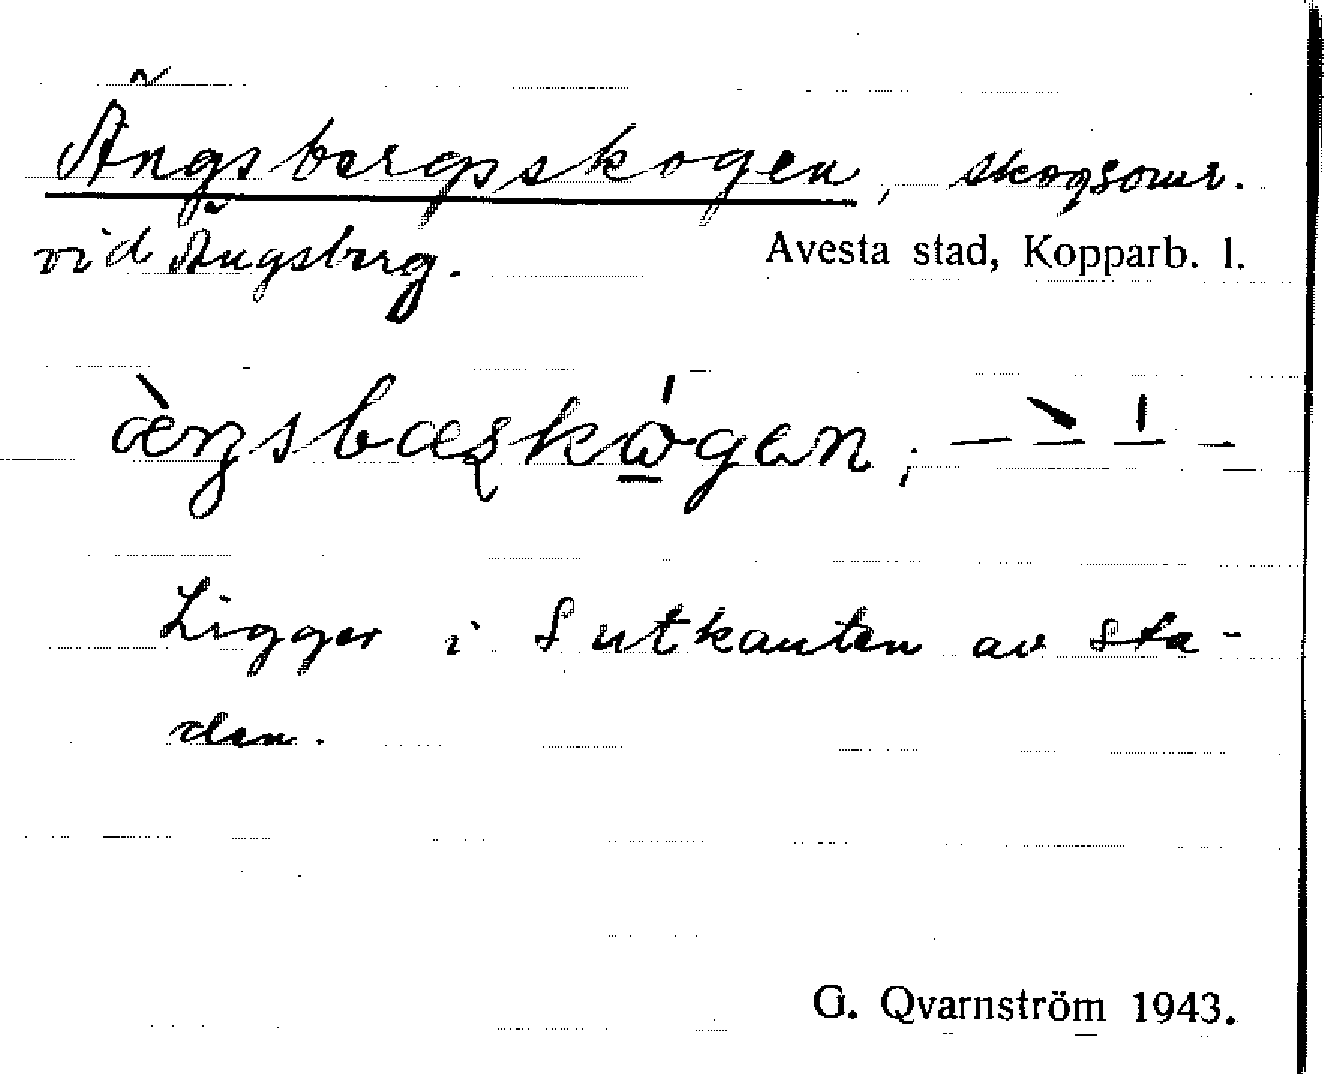 Ängsbergsskogen, skogsomr.
vid Ängsberg. Avesta stad, Kopparb. l.
Ligger i S utkanten av sta-
den.
G. Qvarnström 1943.